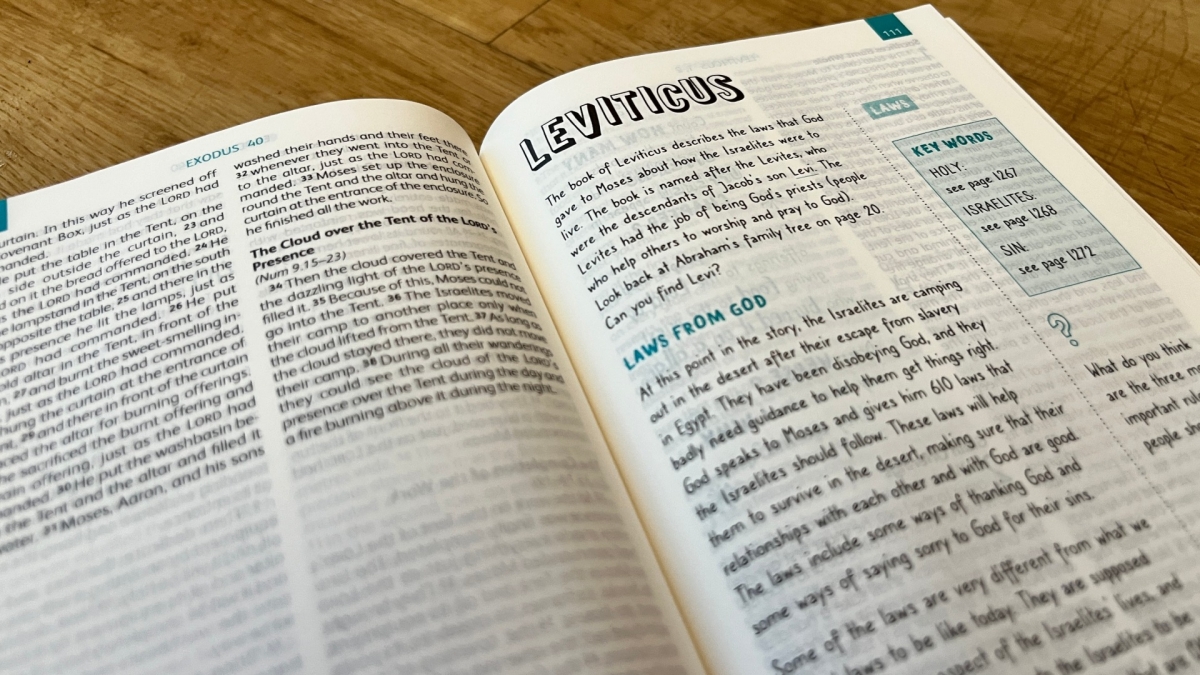 EXODUS 40
urtain. In this way he screened off
ovenant Box, just as the LORD had
manded.
put the table in the Tent, on the
side outside the curtain, 23 and
d on it the bread offered to the LORD,
s the LORD had commanded. 24 He
e lampstand in the Tent, on the south
opposite the table, 25 and there in the
presence he lit the lamps, just as
ORD had commanded. 26 He put
old altar in the Tent, in front of the
27 and burnt the sweet-smelling in-
just as the LORD had commanded.
hung the curtain at the entrance of
nt, 29 and there in front of the curtain
aced the altar for burning offerings.
he sacrificed the burnt offering and
ain offering, just as the LORD had
anded. 30 He put the washbasin be
the Tent and the altar and filled it
water. 31 Moses, Aaron, and his sons
washed their hands and their feet there
32 whenever they went into the Tent or
to the altar, just as the LORD had com-
manded. 33 Moses set up the enclosure
round the Tent and the altar and hung the
curtain at the entrance of the enclosure. So
he finished all the work.
The Cloud over the Tent of the LORD's
Presence
(Num 9.15–23)
34 Then the cloud covered the Tent and
the dazzling light of the LORD's presence
filled it. 35 Because of this, Moses could not
go into the Tent. 36 The Israelites moved
their camp to another place only when
the cloud lifted from the Tent. 37 As long as
the cloud stayed there, they did not move
their camp. 38 During all their wanderings
they could see the cloud of the LORD's
presence over the Tent during the day and
a fire burning above it during the night.
111
LEVITICUS
The book of Leviticus describes the laws that God
gave to Moses about how the Israelites were to
live. The book is named after the Levites, who
were the descendants of Jacob's son Levi. The
Levites had the job of being God's priests (people
who help others to worship and pray to God).
Look back at Abraham's family tree on page 20.
Can you find Levi?
LAWS FROM GOD
At this point in the story, the Israelites are camping
out in the desert after their escape from slavery
in Egypt. They have been disobeying God, and they
badly need guidance to help them get things right.
God speaks to Moses and gives him 610 laws that
the Israelites should follow. These laws will help
them to survive in the desert, making sure that their
relationships with each other and with God are good.
The laws include some ways of thanking God and
some ways of saying sorry to God for their sins.
Some of the laws are very different from what we
laws to be like today. They are supposed
aspect of the Israelites' lives, and
the Israelites to be
LAWS
KEY WORDS
HOLY:
see page 1267
ISRAELITES:
see page 1268
SIN:
see page 1272
?
What do you think
are the three mo
important rul
people sho